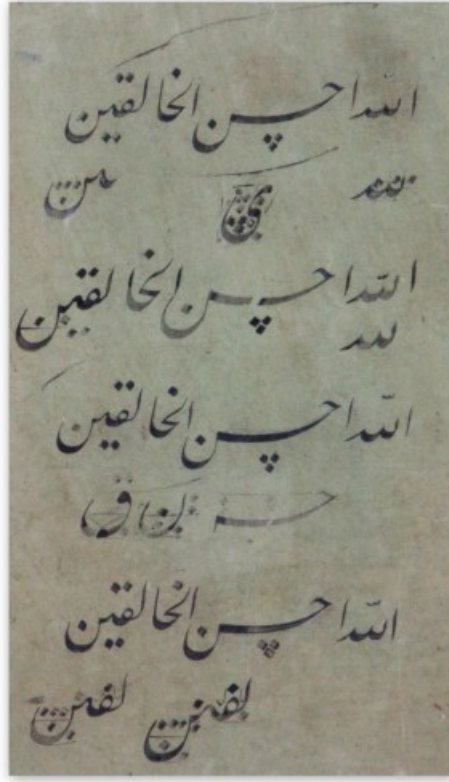 الله احسن الخالقین
الله احسن الخالقین
لله
الله احسن الخالقین
الله احسن الخالقین
لقین لقین